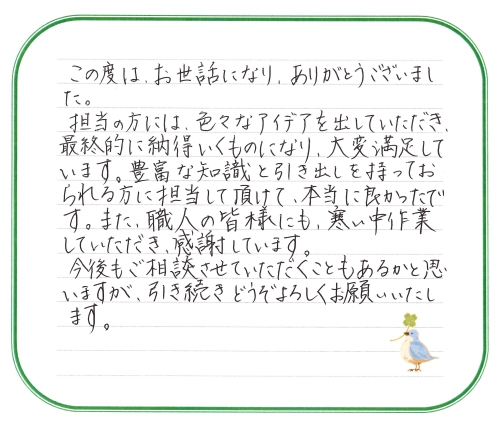 この度は、お世話になり、ありがとうございまし
た。
担当の方には、色々なアイデアを出していただき、
最終的に納得いくものになり、大変満足して
います。豊富な知識と引き出しを持ってお
られる方に担当して頂けて、本当に良かったで
す。また、職人の皆様にも、寒い中作業
していただき、感謝しています。
今後もご相談させていただくこともあるかと思
いますが、引き続きどうぞよろしくお願いいたし
ます。